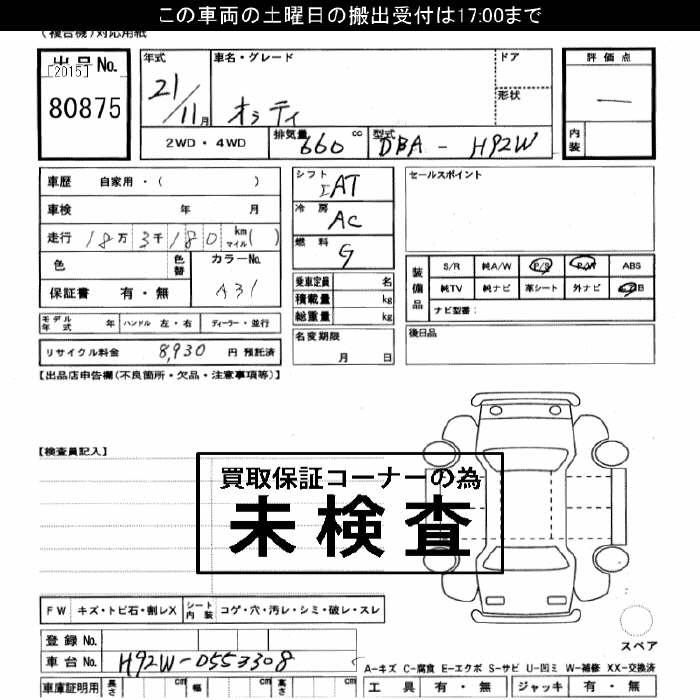 この車両の土曜日の搬出受付は17:00まで
(複合機)対応用紙
出品No.
[2015]
80875
年式
21/11月
車名・グレード
オッティ
ドア
形状
評価点
—
内装
2WD・4WD
排気量 660 cc
型式 DBA - H92W
車歴 自家用・( )
車検 年 月
走行 18万3千180 km マイル( )
色 色替 カラーNo.
A31
保証書 有・無
モデル年式 年 ハンドル 左・右 ディーラー・並行
リサイクル料金 8,930 円 預託済
シフト
IAT
冷房
AC
燃料
G
乗車定員 名
積載量 kg
総重量 kg
名変期限
月 日
セールスポイント
装備品
S/R 純A/W P/S P/W ABS
純TV 純ナビ 革シート 外ナビ B
ナビ型番:
後日品
【出品店申告欄(不良箇所・欠品・注意事項等)】
【検査員記入】
買取保証コーナーの為
未検査
FW キズ・トビ石・割レX シート内装 コゲ・穴・汚レ・シミ・破レ・スレ
登録No.
車台No. H92W-0553308
車庫証明用 長さ cm 幅 cm 高さ cm
スペア
A-キズ C-腐食 E-エクボ S-サビ U-凹ミ W-補修 XX-交換済
工具 有・無 ジャッキ 有・無